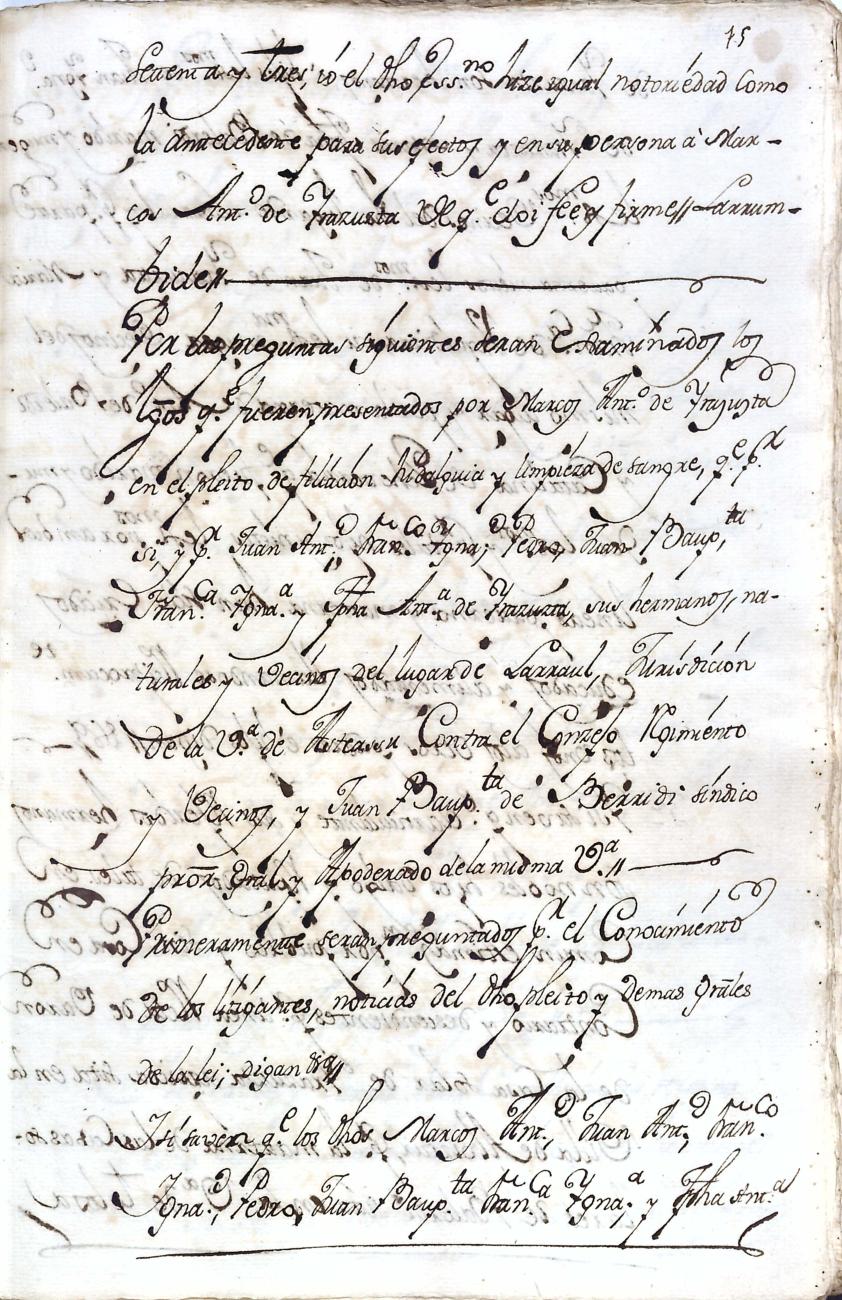 75
Setenta y tres, io el dho ess.no hize igual notoriedad como
la antecedente para sus efectos y en su persona â Mar-
cos Ant.o de Yrazusta de q.e doi fee y firme // Larrum-
bide //
Por las preguntas siguientes seran Examinados los
tgos q.e fueren presentados por Marcos Ant.o de Yrazusta
en el pleito de filiacion hidalguia y limpieza de sangre, q.e p.r
si, y p.r Juan Ant.o, Fran.co Ygna.o, Pedro, Juan Baup.ta
Fran.ca Ygna.a y Jpha Ant.a de Yrazusta, sus hermanos, na-
turales y Vecinos del lugar de Larraul, Jurisdicion
De la V.a de Asteassu Contra el Conzejo Rgimiento
y Vecinos, y Juan Baup.ta de Berridi sindico
pror Gral y Apoderado de la misma V.a //
Primeramente seran preguntados p.r el Conocimiento
de los litigantes, noticias del dho pleito y demas grales
de la lei; digan &a //
Y si saven q.e los dhos Marcos Ant.o, Juan Ant.o, Fran.co
Ygna.o, Pedro, Juan Baup.ta Fran.ca Ygna.a y Jpha Ant.a